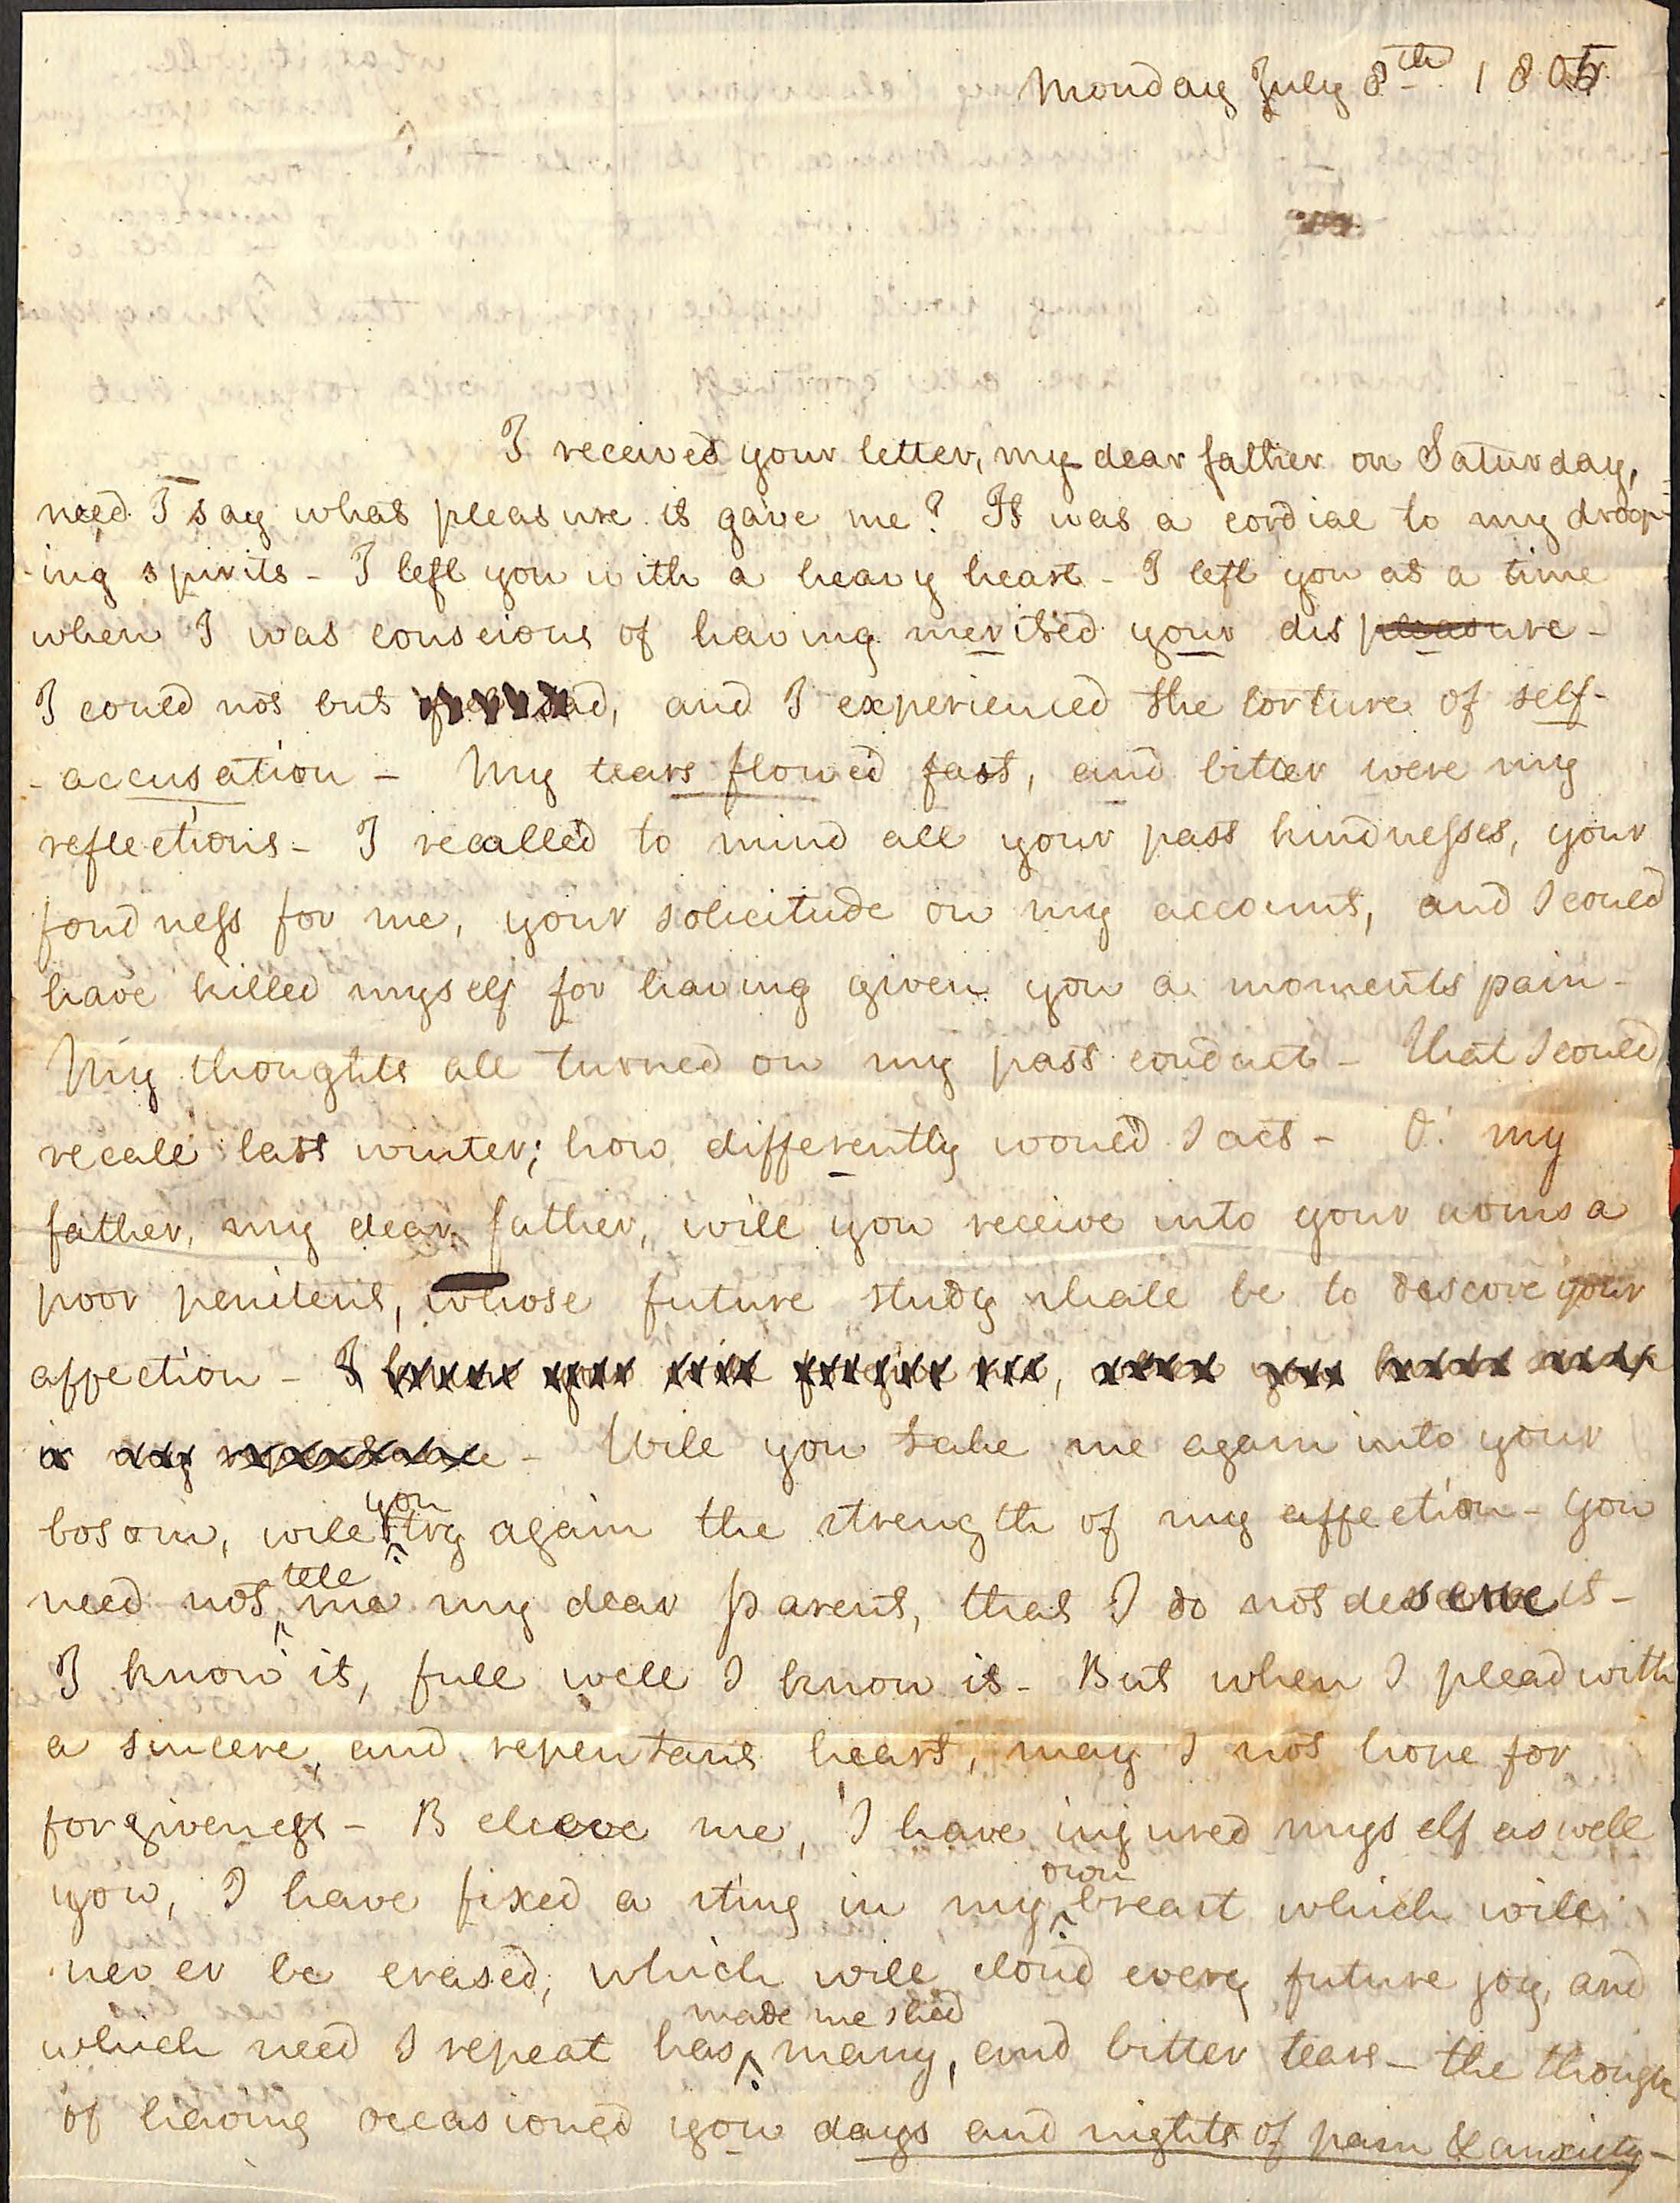 Monday July 8th 1805
I received your letter, my dear father on Saturday,
need I say what pleasure it gave me? It was a cordial to my droop-
-ing spirits - I left you with a heavy heart - I left you at a time
when I was conscious of having merited your displeasure -
I could not but feel sad, and I experienced the torture of self-
-accusation - My tears flowed fast, and bitter were my
reflections - I recalled to mind all your past kindnesses, your
fondness for me, your solicitude on my account, and I could
have killed myself for having given you a moments pain -
My thoughts all turned on my past conduct - That I could
recall last winter; how differently would I act - O! my
father, my dear father, will you receive into your arms a
poor penitent, whose future study shall be to deserve your
affection - I know you will forgive me, when you
is my repentance - Will you take me again into your
bosom, will you try again the strength of my affection - You
need not tell me my dear parent, that I do not deserve it -
I know it, full well I know it - But when I plead with
a sincere, and repentant heart, may I not hope for
forgiveness - Believe me, I have injured myself as well
you, I have fixed a sting in my own breast which will
never be erased, which will cloud every future joy, and
which need I repeat has made me shed many, and bitter tears - the though
of having occasioned you days and nights of pain & anxiety -